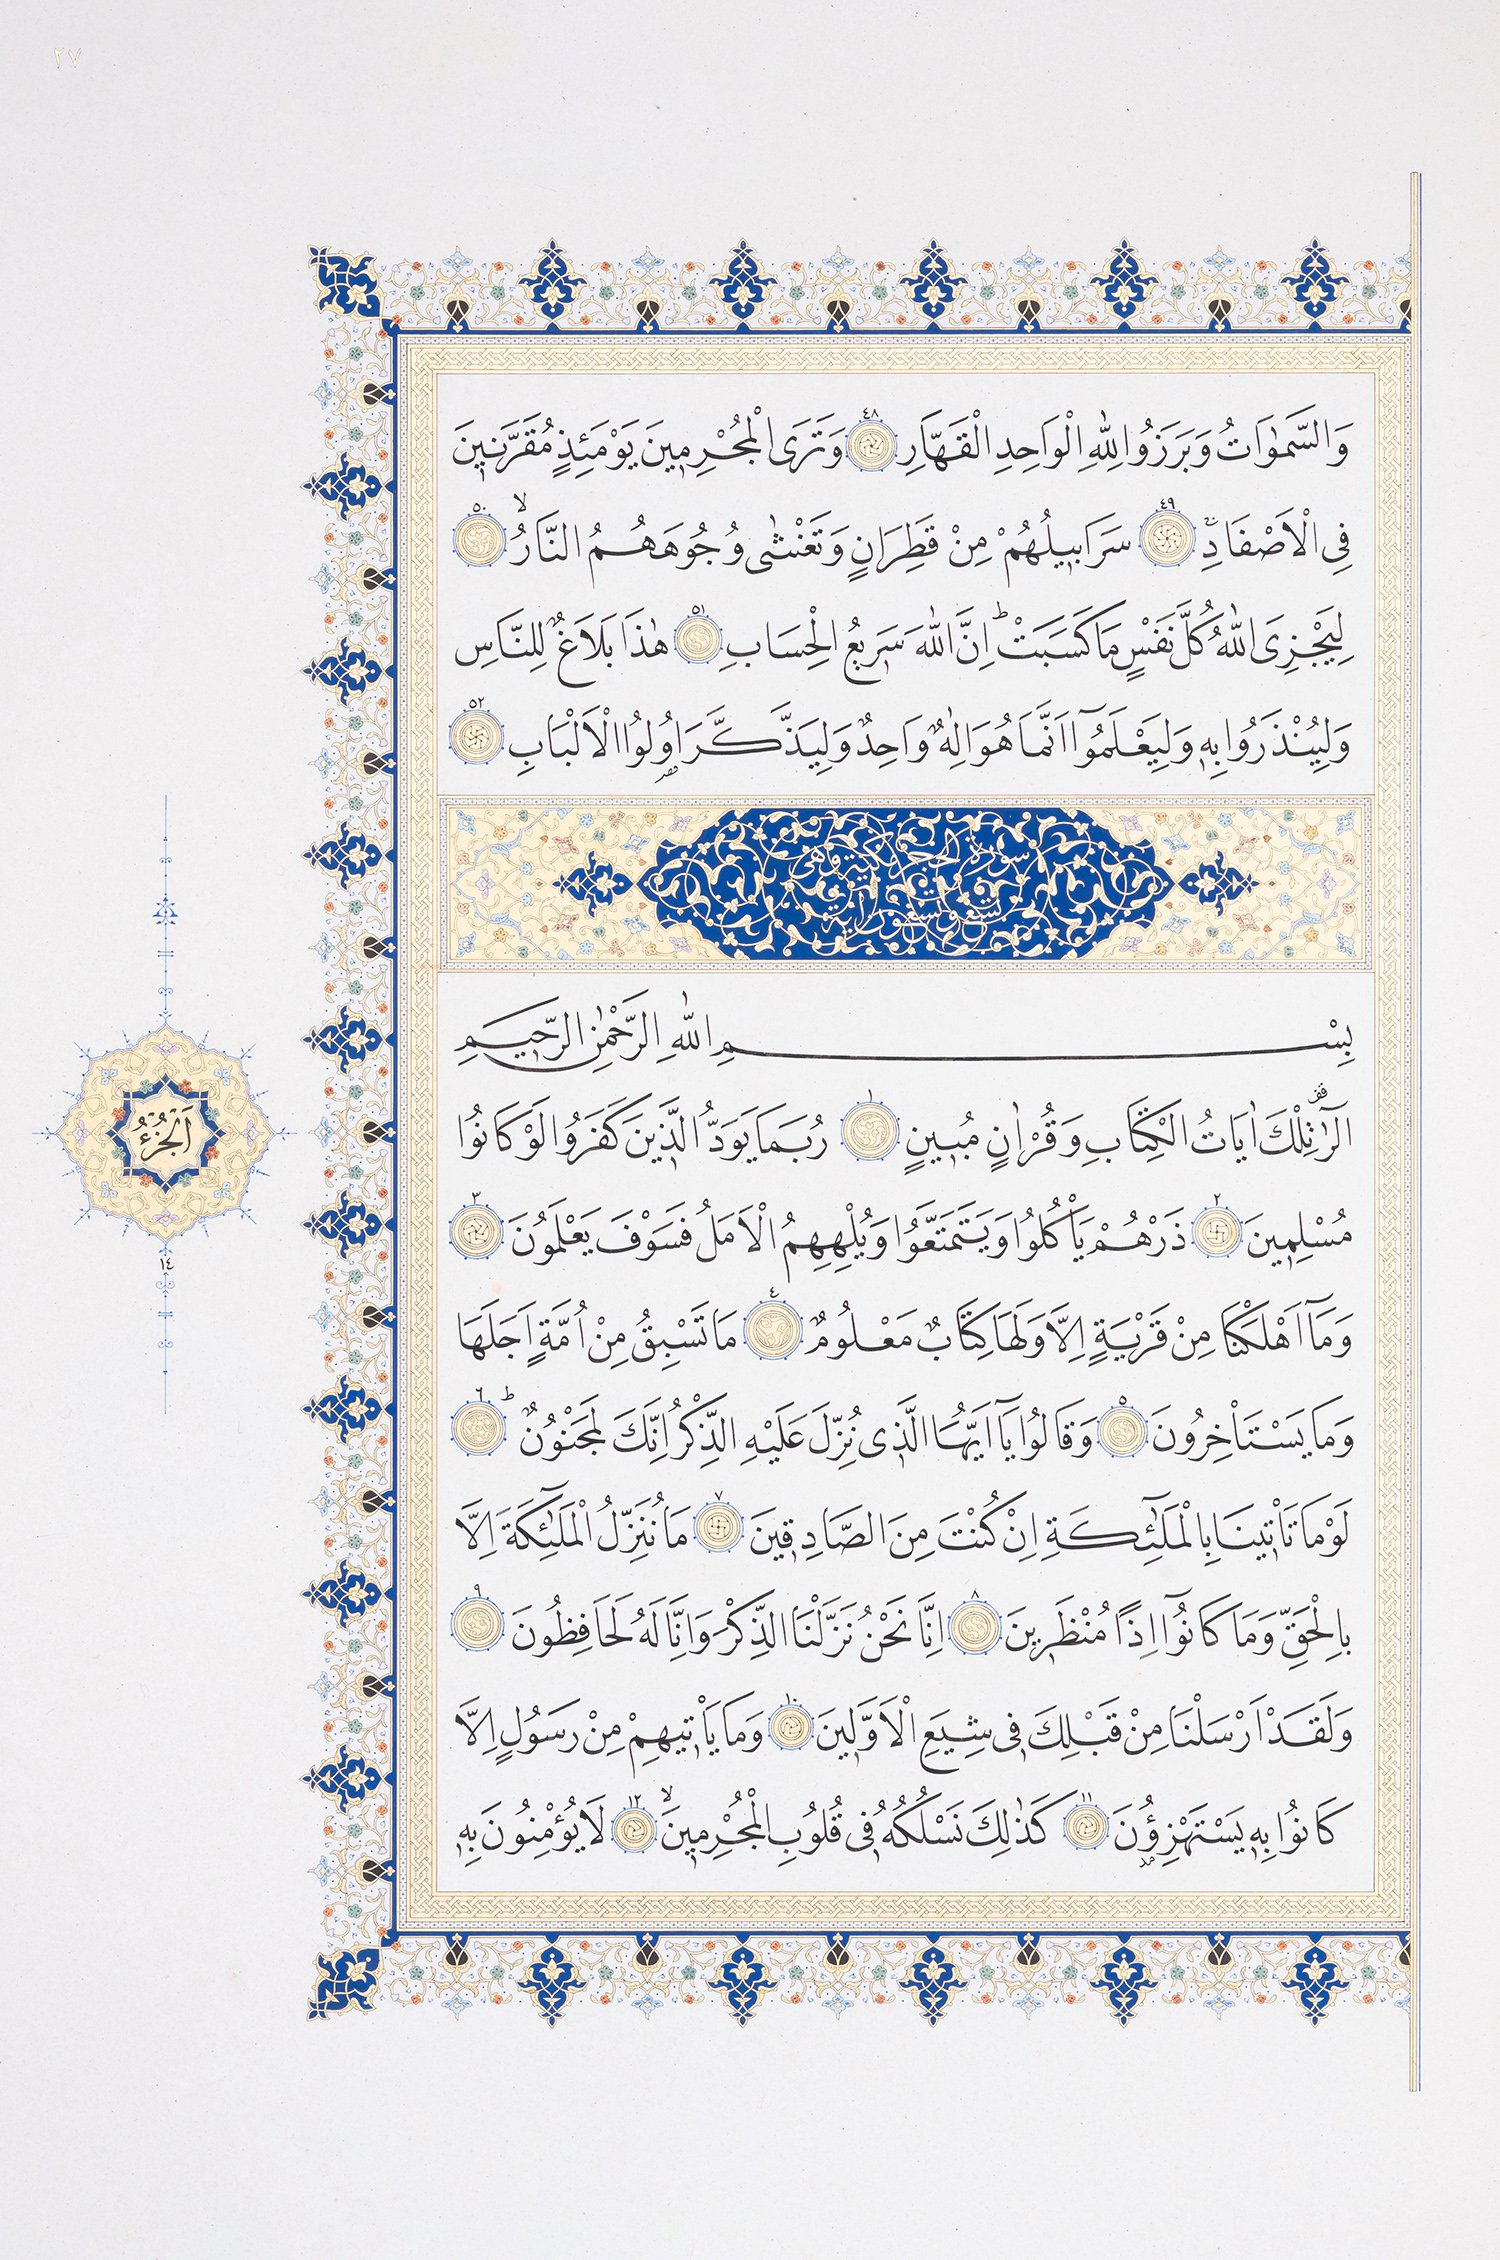 ٢٧
وَالسَّمٰوَاتُ وَبَرَزُوا لِلّٰهِ الْوَاحِدِ الْقَهَّارِ ٤٨ وَتَرَى الْمُجْرِم۪ينَ يَوْمَئِذٍ مُقَرَّن۪ينَ
فِى الْاَصْفَادِۚ ٤٩ سَرَاب۪يلُهُمْ مِنْ قَطِرَانٍ وَتَغْشٰى وُجُوهَهُمُ النَّارُۙ ٥٠
لِيَجْزِىَ اللّٰهُ كُلَّ نَفْسٍ مَا كَسَبَتْۜ اِنَّ اللّٰهَ سَر۪يعُ الْحِسَابِ ٥١ هٰذَا بَلَاغٌ لِلنَّاسِ
وَلِيُنْذَرُوا بِه۪ وَلِيَعْلَمُٓوا اَنَّمَا هُوَ اِلٰهٌ وَاحِدٌ وَلِيَذَّكَّرَ اُو۬لُوا الْاَلْبَابِ ٥٢
سورة الحجر مكية وهى
تسع وتسعون آية
بِسْمِ اللّٰهِ الرَّحْمٰنِ الرَّح۪يمِ
الٓرٰ تِلْكَ اٰيَاتُ الْكِتَابِ وَقُرْاٰنٍ مُب۪ينٍ ١ رُبَمَا يَوَدُّ الَّذ۪ينَ كَفَرُوا لَوْ كَانُوا
مُسْلِم۪ينَ ٢ ذَرْهُمْ يَأْكُلُوا وَيَتَمَتَّعُوا وَيُلْهِهِمُ الْاَمَلُ فَسَوْفَ يَعْلَمُونَ ٣
وَمَٓا اَهْلَكْنَا مِنْ قَرْيَةٍ اِلَّا وَلَهَا كِتَابٌ مَعْلُومٌ ٤ مَا تَسْبِقُ مِنْ اُمَّةٍ اَجَلَهَا
وَمَا يَسْتَأْخِرُونَ ٥ وَقَالُوا يَٓا اَيُّهَا الَّذ۪ى نُزِّلَ عَلَيْهِ الذِّكْرُ اِنَّكَ لَمَجْنُونٌۜ ٦
لَوْ مَا تَأْت۪ينَا بِالْمَلٰٓئِكَةِ اِنْ كُنْتَ مِنَ الصَّادِق۪ينَ ٧ مَا نُنَزِّلُ الْمَلٰٓئِكَةَ اِلَّا
بِالْحَقِّ وَمَا كَانُٓوا اِذًا مُنْظَر۪ينَ ٨ اِنَّا نَحْنُ نَزَّلْنَا الذِّكْرَ وَاِنَّا لَهُ لَحَافِظُونَ ٩
وَلَقَدْ اَرْسَلْنَا مِنْ قَبْلِكَ ف۪ى شِيَعِ الْاَوَّل۪ينَ ١٠ وَمَا يَأْت۪يهِمْ مِنْ رَسُولٍ اِلَّا
كَانُوا بِه۪ يَسْتَهْزِؤُ۫نَ ١١ كَذٰلِكَ نَسْلُكُهُ ف۪ى قُلُوبِ الْمُجْرِم۪ينَۙ ١٢ لَا يُؤْمِنُونَ بِه۪
اَلْجُزْءُ
١٤